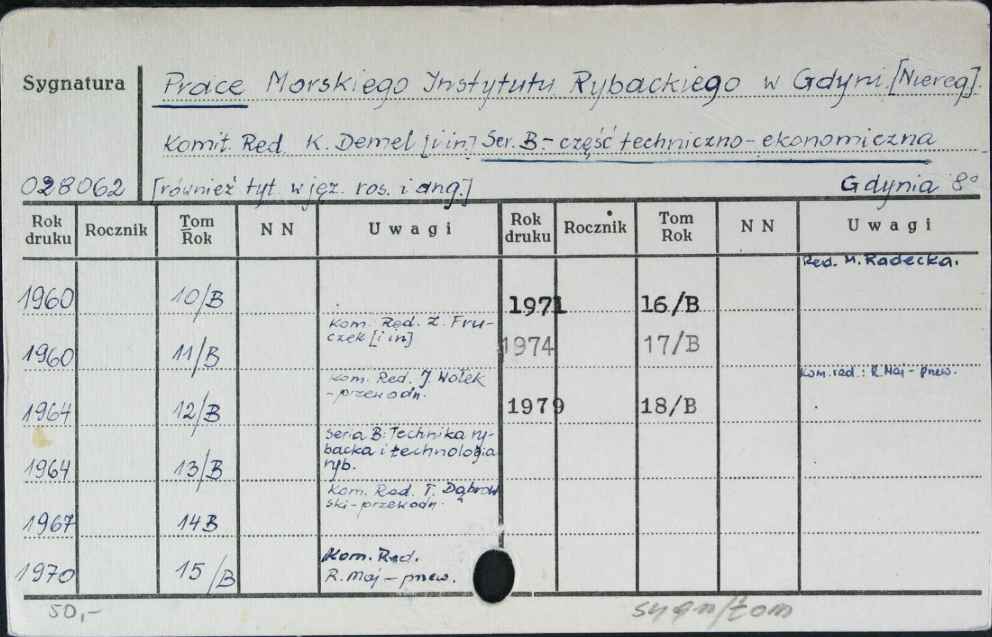 Sygnatura Prace Morskiego Instytutu Rybackiego w Gdyni. [Niereg].
Komit. Red. K. Demel [i in] Ser. B.- część techniczno-ekonomiczna
028062 [również tyt. w jęz. ros. i ang.] Gdynia 8°
Rok druku Rocznik Tom Rok NN Uwagi Rok druku Rocznik Tom Rok NN Uwagi
Red. M. Radecka.
1960 10/B 1971 16/B
Kom. Red. Z. Fru-
czek [i in]
1960 11/B 1974 17/B
Kom. Red. J. Wołek
-przewodn.
Kom. red.: R. Maj - przew.
1964 12/B 1979 18/B
Seria B: Technika ry-
backa i technologia
ryb.
1964 13/B
Kom. Red. T. Dąbrow
ski-przewodn.
1967 14B
Kom. Red.
R. Maj - przew.
1970 15/B
50,- sygn/tom